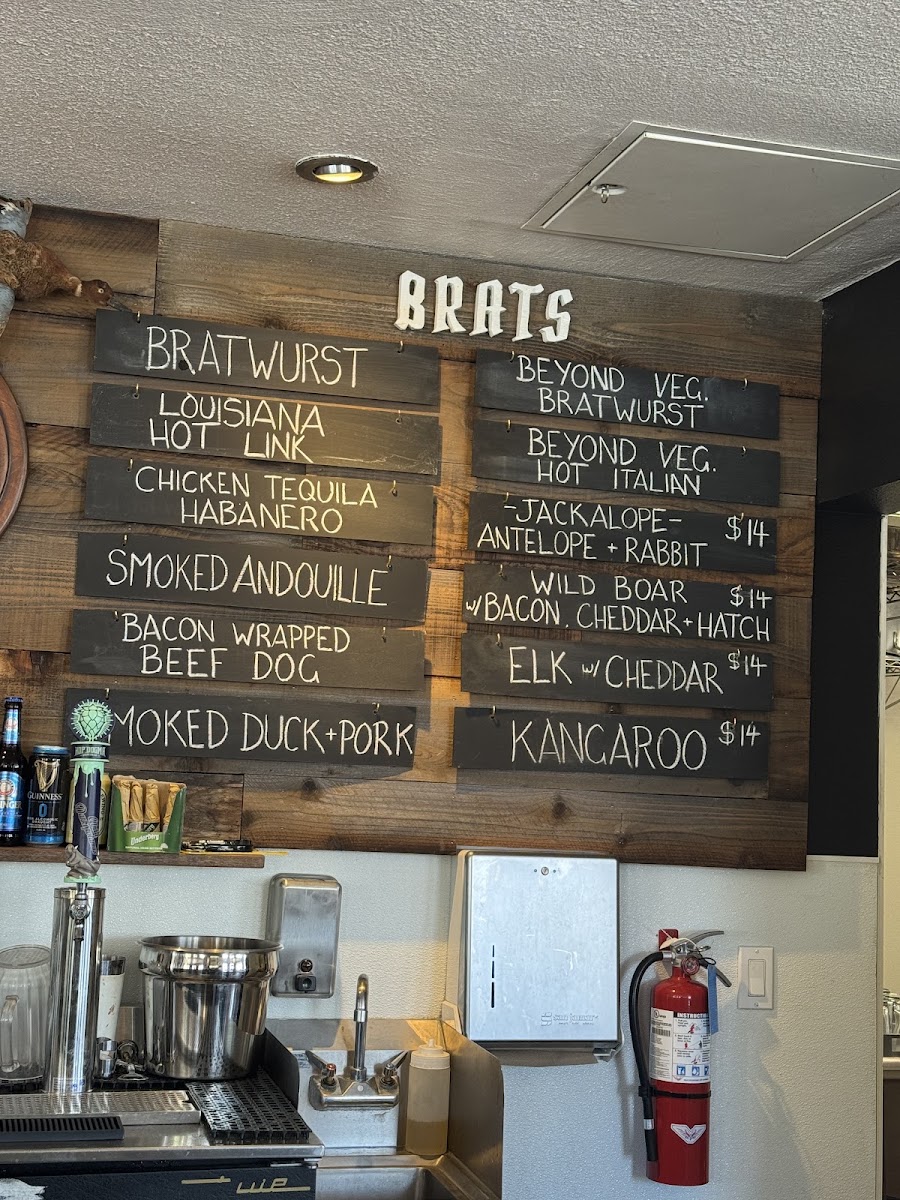 BRATS
BRATWURST
LOUISIANA
HOT LINK
CHICKEN TEQUILA
HABANERO
SMOKED ANDOUILLE
BACON WRAPPED
BEEF DOG
MOKED DUCK+PORK
BEYOND VEG.
BRATWURST
BEYOND VEG.
HOT ITALIAN
-JACKALOPE- $14
ANTELOPE + RABBIT
WILD BOAR $14
w/BACON, CHEDDAR+HATCH
ELK w/ CHEDDAR $14
KANGAROO $14
HOP DOGMA
GUINNESS
0
Underberg
San Jamar
INSTRUCTIONS